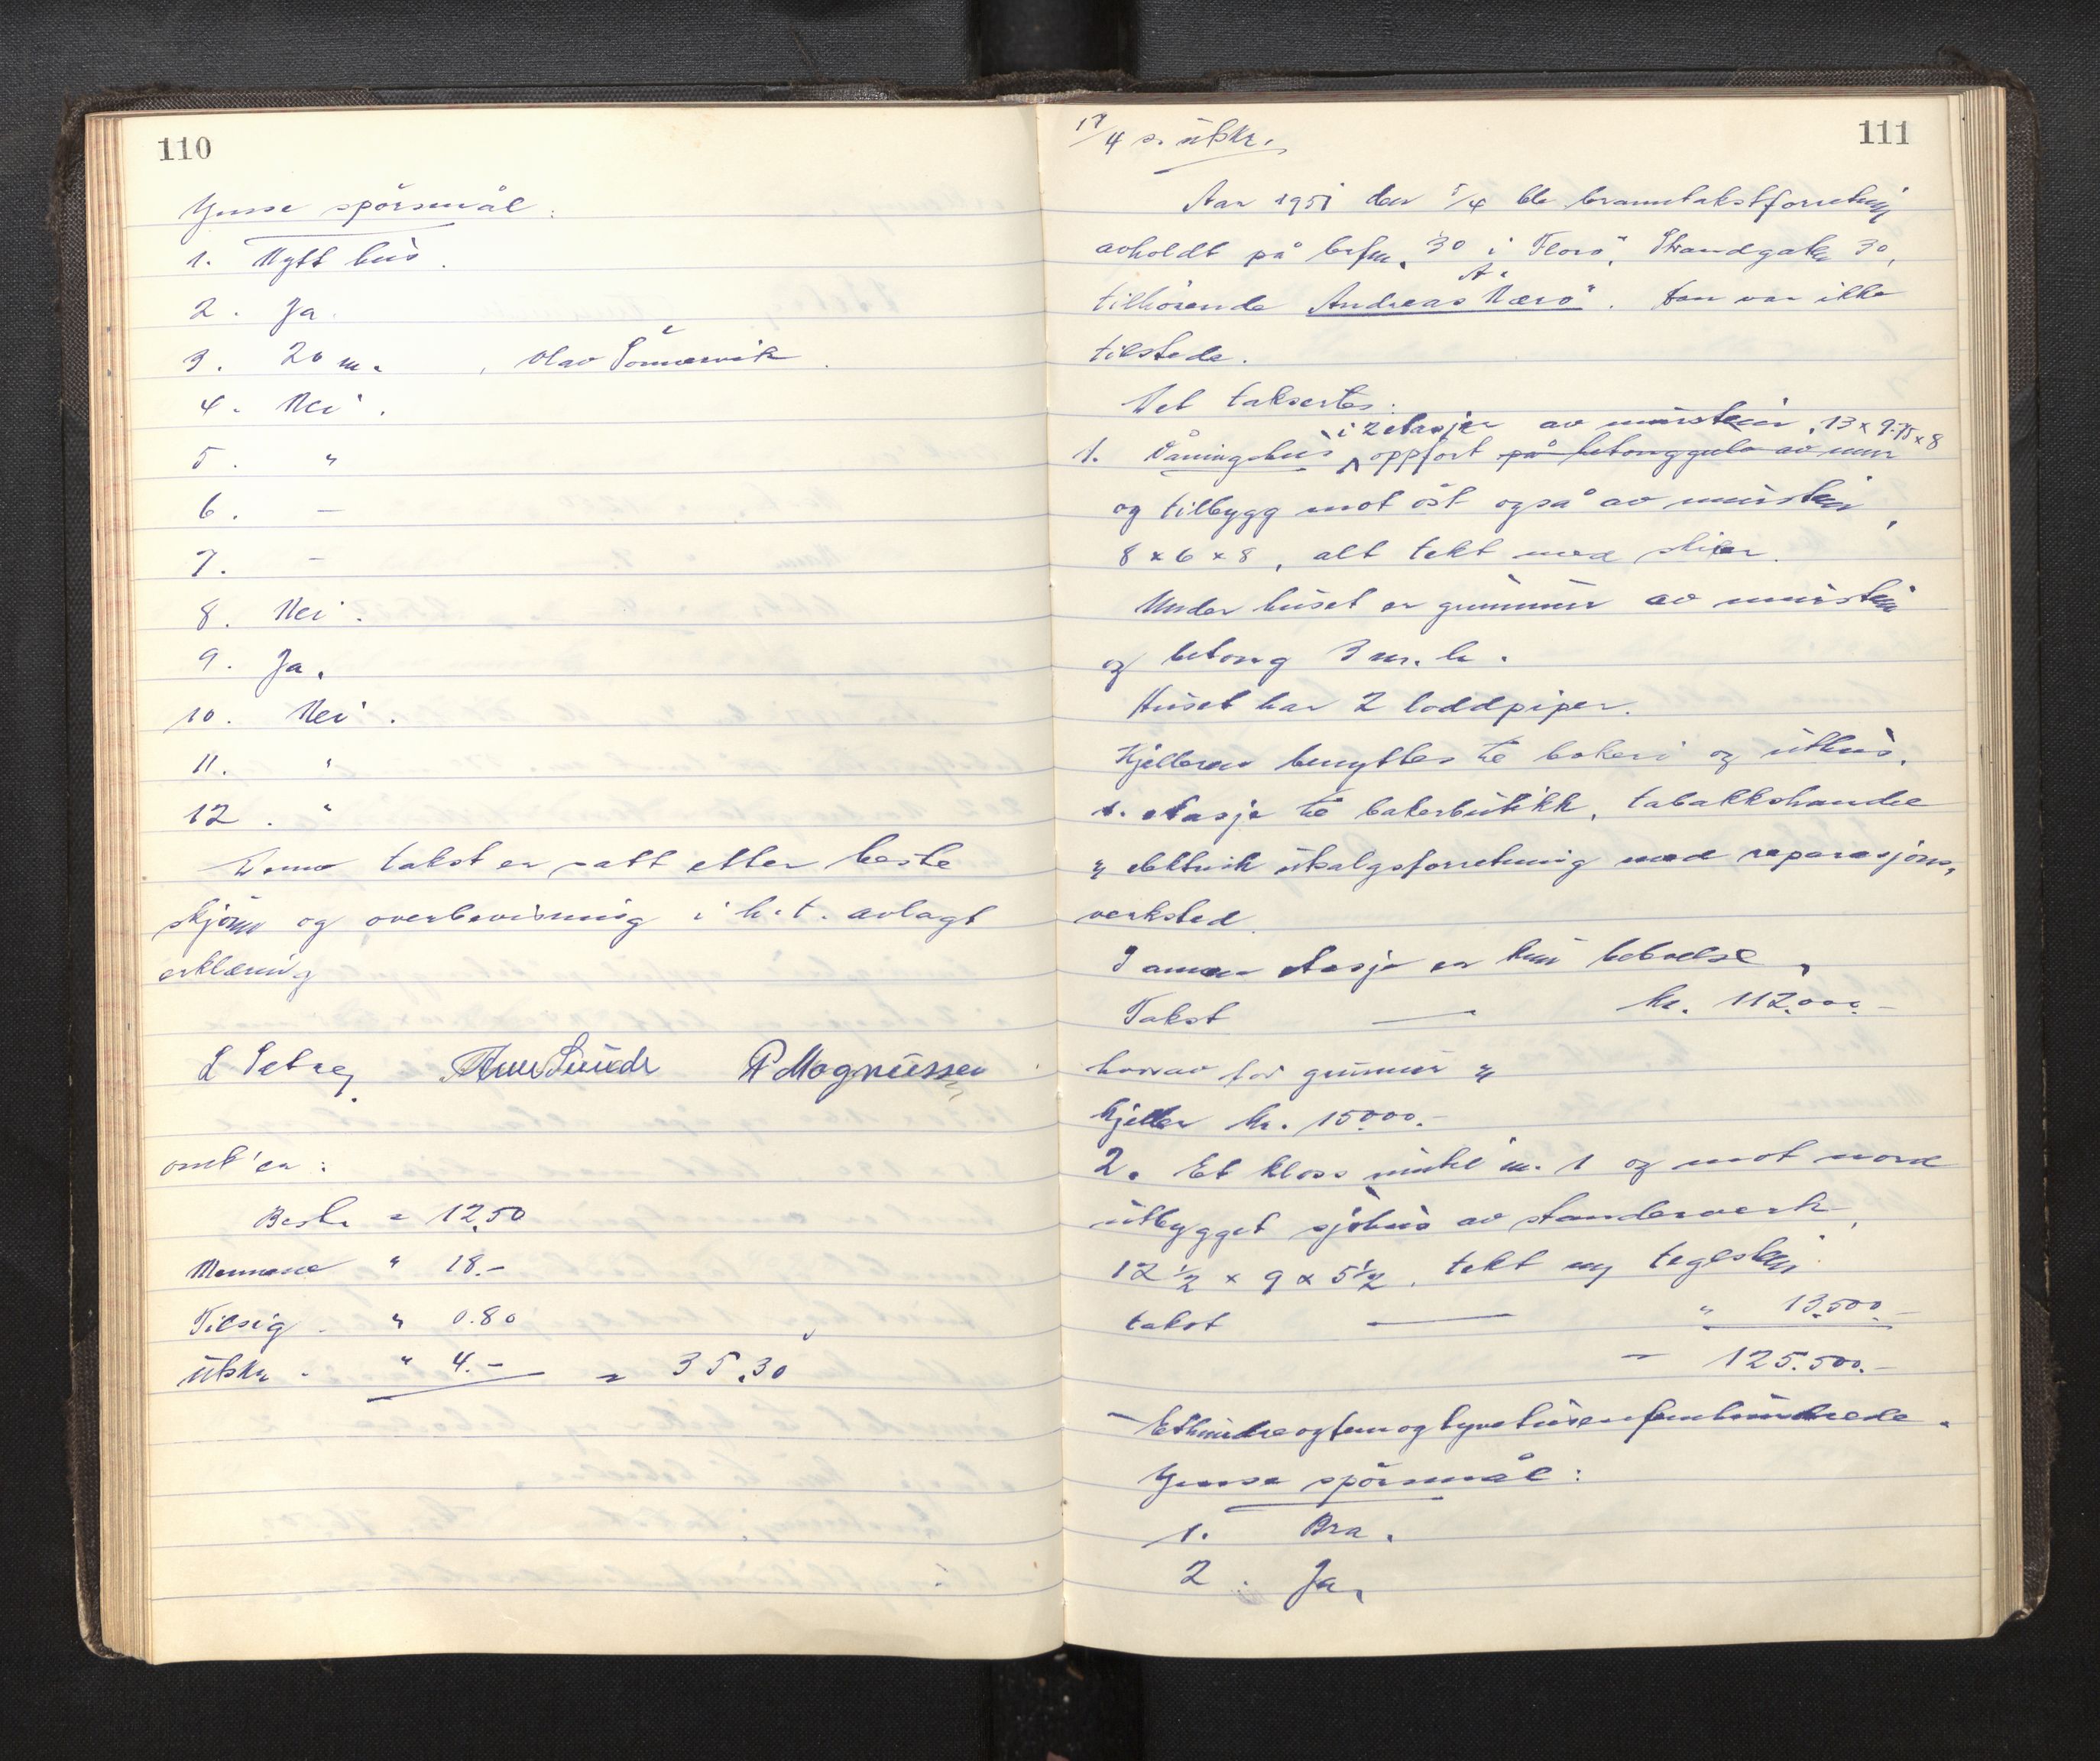 110
Gjusse spörsmål:
1. Nytt hus.
2. Ja.
3. 20 m. , Olav Sönnervik.
4. Nei.
5. "
6. —
7. —
8. Nei.
9. Ja.
10. Nei.
11. "
12. "
Denne takst er satt etter beste
skjönn og overbevisning i h.t. avlagt
erklæring
L Setre, P Magnussen
omk'er:
Best. = 12.50
Mennene " 18.-
Tilsig. " 0.80
Utskr. " 4.- = 35.30
111
17/4 s. utskr.
Aar 1951 den 5/4 ble branntakstforretning
avholdt på brfnr. 30 i Florö, Strandgaten 30,
tilhörende Andreas A. Nærö. Han var ikke
tilstede.
Det taksertes:
i 2 etasjer av murstein, 13 x 9.75 x 8
1. Våningshus oppfört på betonggulv av mur
og tilbygg mot öst også av murstein,
8 x 6 x 8, alt tekt med skifer.
Under huset er grunnmur av murstein
og betong 3 m. h.
Huset har 2 loddpiper.
Kjelleren benyttes til bakeri og uthus,
1. etasje til bakerbutikk, tabakkshandel
og elektrisk utsalgsforretning med reparasjons-
verksted.
I annen etasje er kun beboelse,
Takst — kr. 112.000.-
hvorav for grunnmur og
kjeller kr. 15000.-
2. Et kloss inntil nr. 1 og mot nord
utbygget sjöhus av standerverk,
12 1/2 x 9 x 5 1/2, tekt m/ teglstein
takst — " 13.500.-
= 125.500.-
- Ethundreogfemogtyvetusenfemhundrede.
Gjusse spörsmål:
1. Bra.
2. Ja.